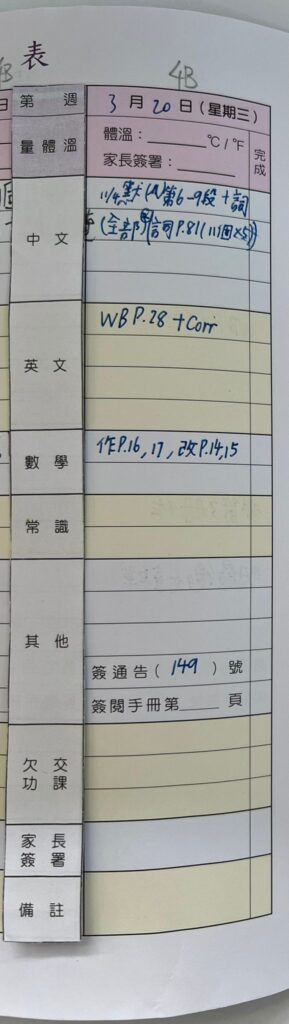 表
4B
第 週
3 月 20 日 (星期三)
量體溫
體溫：______ ℃/℉
家長簽署：______
完成
中文
11/4 默(八)第6-9段+詞
(全部 詞 P.81(11個×5))
英文
WB P.28 + Corr
數學
作P.16, 17, 改P.14,15
常識
其他
簽通告( 149 )號
簽閱手冊第____頁
欠交
功課
家長
簽署
備註